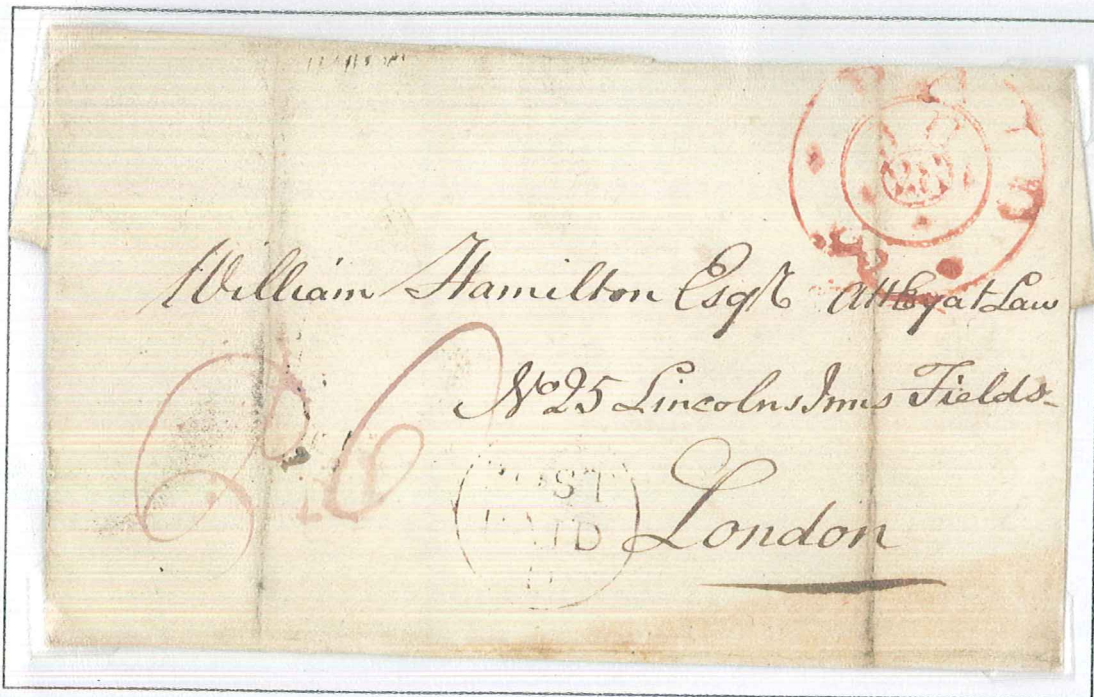 William Hamilton Esqr Atty at Law
No 25 Lincolns Inns Fields
London
POST
PAID